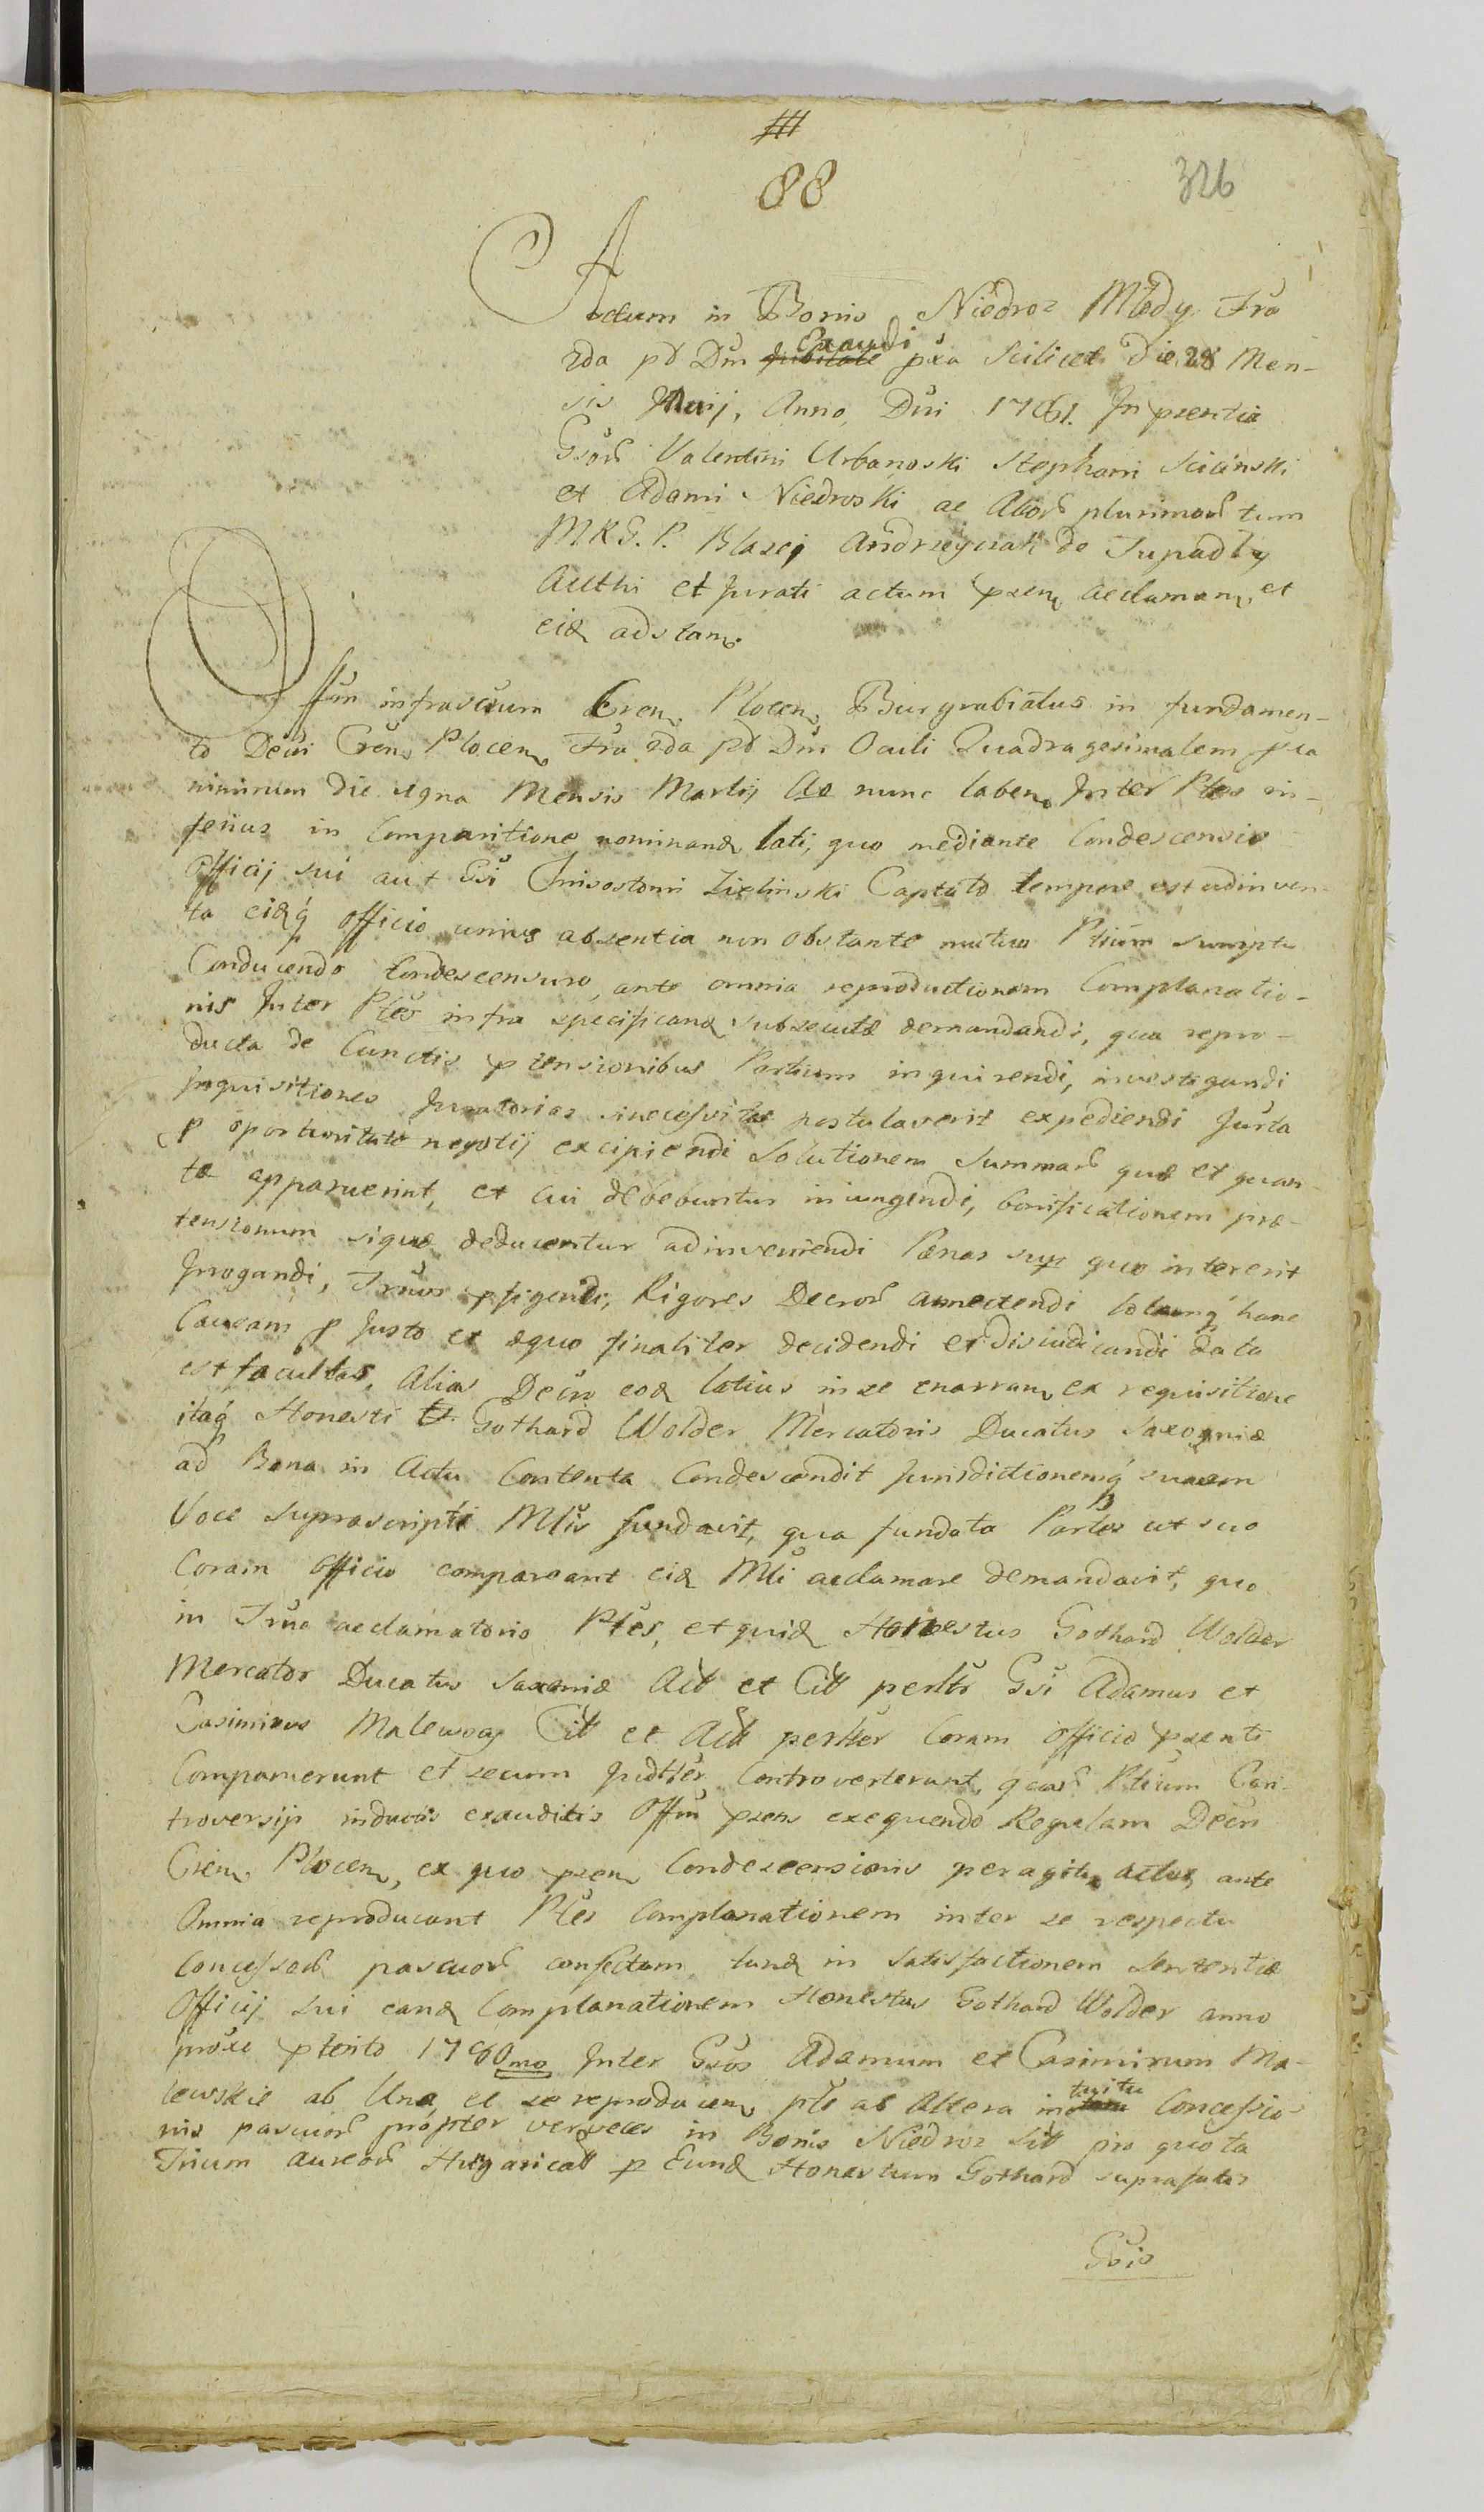 88
326
Actum in Bonis Niedroz Młody Fra
2da pt Dm Exaudi pxa Scilicet Die 28 Men-
sis Maij, Anno Dni 1761. In pzentia
Gsor Valentini Urbanoski Stephani Scicinski
et Adami Niedroski ac Alior plurimor tum
MRG. P. Blazej Andrzeyczak de Tupadły
Autthi et Jurati actum pzen acclaman et
eid adstan.
Offm infrascrum Cren. Plocen, Burgrabiatus in fundamen-
to Decri Cren, Plocen Fra 2da pt Dm Oculi Quadragesimalem pxa
nimirum die Mensis Martij Ao nunc laben, Inter Ptes in-
ferius in Comparitione nominand lati, quo mediante Condescensio
Officij sui aut Gsi Chrisostomi Zielinski Captato tempore est adinven-
ta eidq officio unius absentia non obstante mutuo Ptium sumptu
Conducendo Condescensuro, ante omnia reproductionem Complanatio-
nis Inter Ptes infra specificand subsecutæ demandandi, qua repro-
ducta de Cunctis ptensionibus Partium inquirendi, investigandi
Inquisitiones Juratorias si necessitas postulaverit expediendi Jurta
p oportunitate negotij excipiendi Solutionem Summar quæ et quan-
tæ apparuerint, et cui debebuntur iniungendi, bonificationem præ-
tensionum siquæ deducentur adinveniendi Pænas sup quo intererit
Irrogandi, Trnos pfigendi, Rigores Decror annectendi totamq hanc
Causam p Justo et æquo finaliter decidendi et disiudicandi data
est facultas, alias Decro eod latius in se enarran, ex requisitione
itaq Honesti Gothard Wolder Mercatoris Ducatus Saxogniæ
ad Bona in Actu Contenta Condescendit Jurisdictionemq suam
Voce suprascripti Mlis fundavit, qua fundata Partes ut suo
Coram Officio compareant eid Mli acclamare demandavit, quo
in Trno acclamatorio Ptes, et quid Honestus Gothard Wolder
Mercator Ducatus Saxoniæ Act et Citt perltr Gsi Adamus et
Casimirus Malewscy Citt et Act perltr Coram Officio pzenti
Comparuerunt et secum Judttr Controverterunt, quar Ptium Con-
troversijs inductis exauditis Offm pzens exequendo Regulam Decri
Cren. Plocen, ex quo pzen, Condescensionis peragitur actus, ante
Omnia reproducant Ptes Complanationem inter se respectu
Concessor pascuor confectam, tund in Satisfactionem Sententiæ
Officij sui eand Complanationem Honestus Gothard Wolder anno
proxe pterito 1760mo Inter Gsos Adamum et Casimirum Ma-
lewskie ab Una, et se reproducen, pte ab Altera intuitu Concessio-
nis pascuor propter verveces in Bonis Niedroz sitt pro quota
Trium aureor Hugarical p Eund Honestum Gothard suprafatis
Gsis